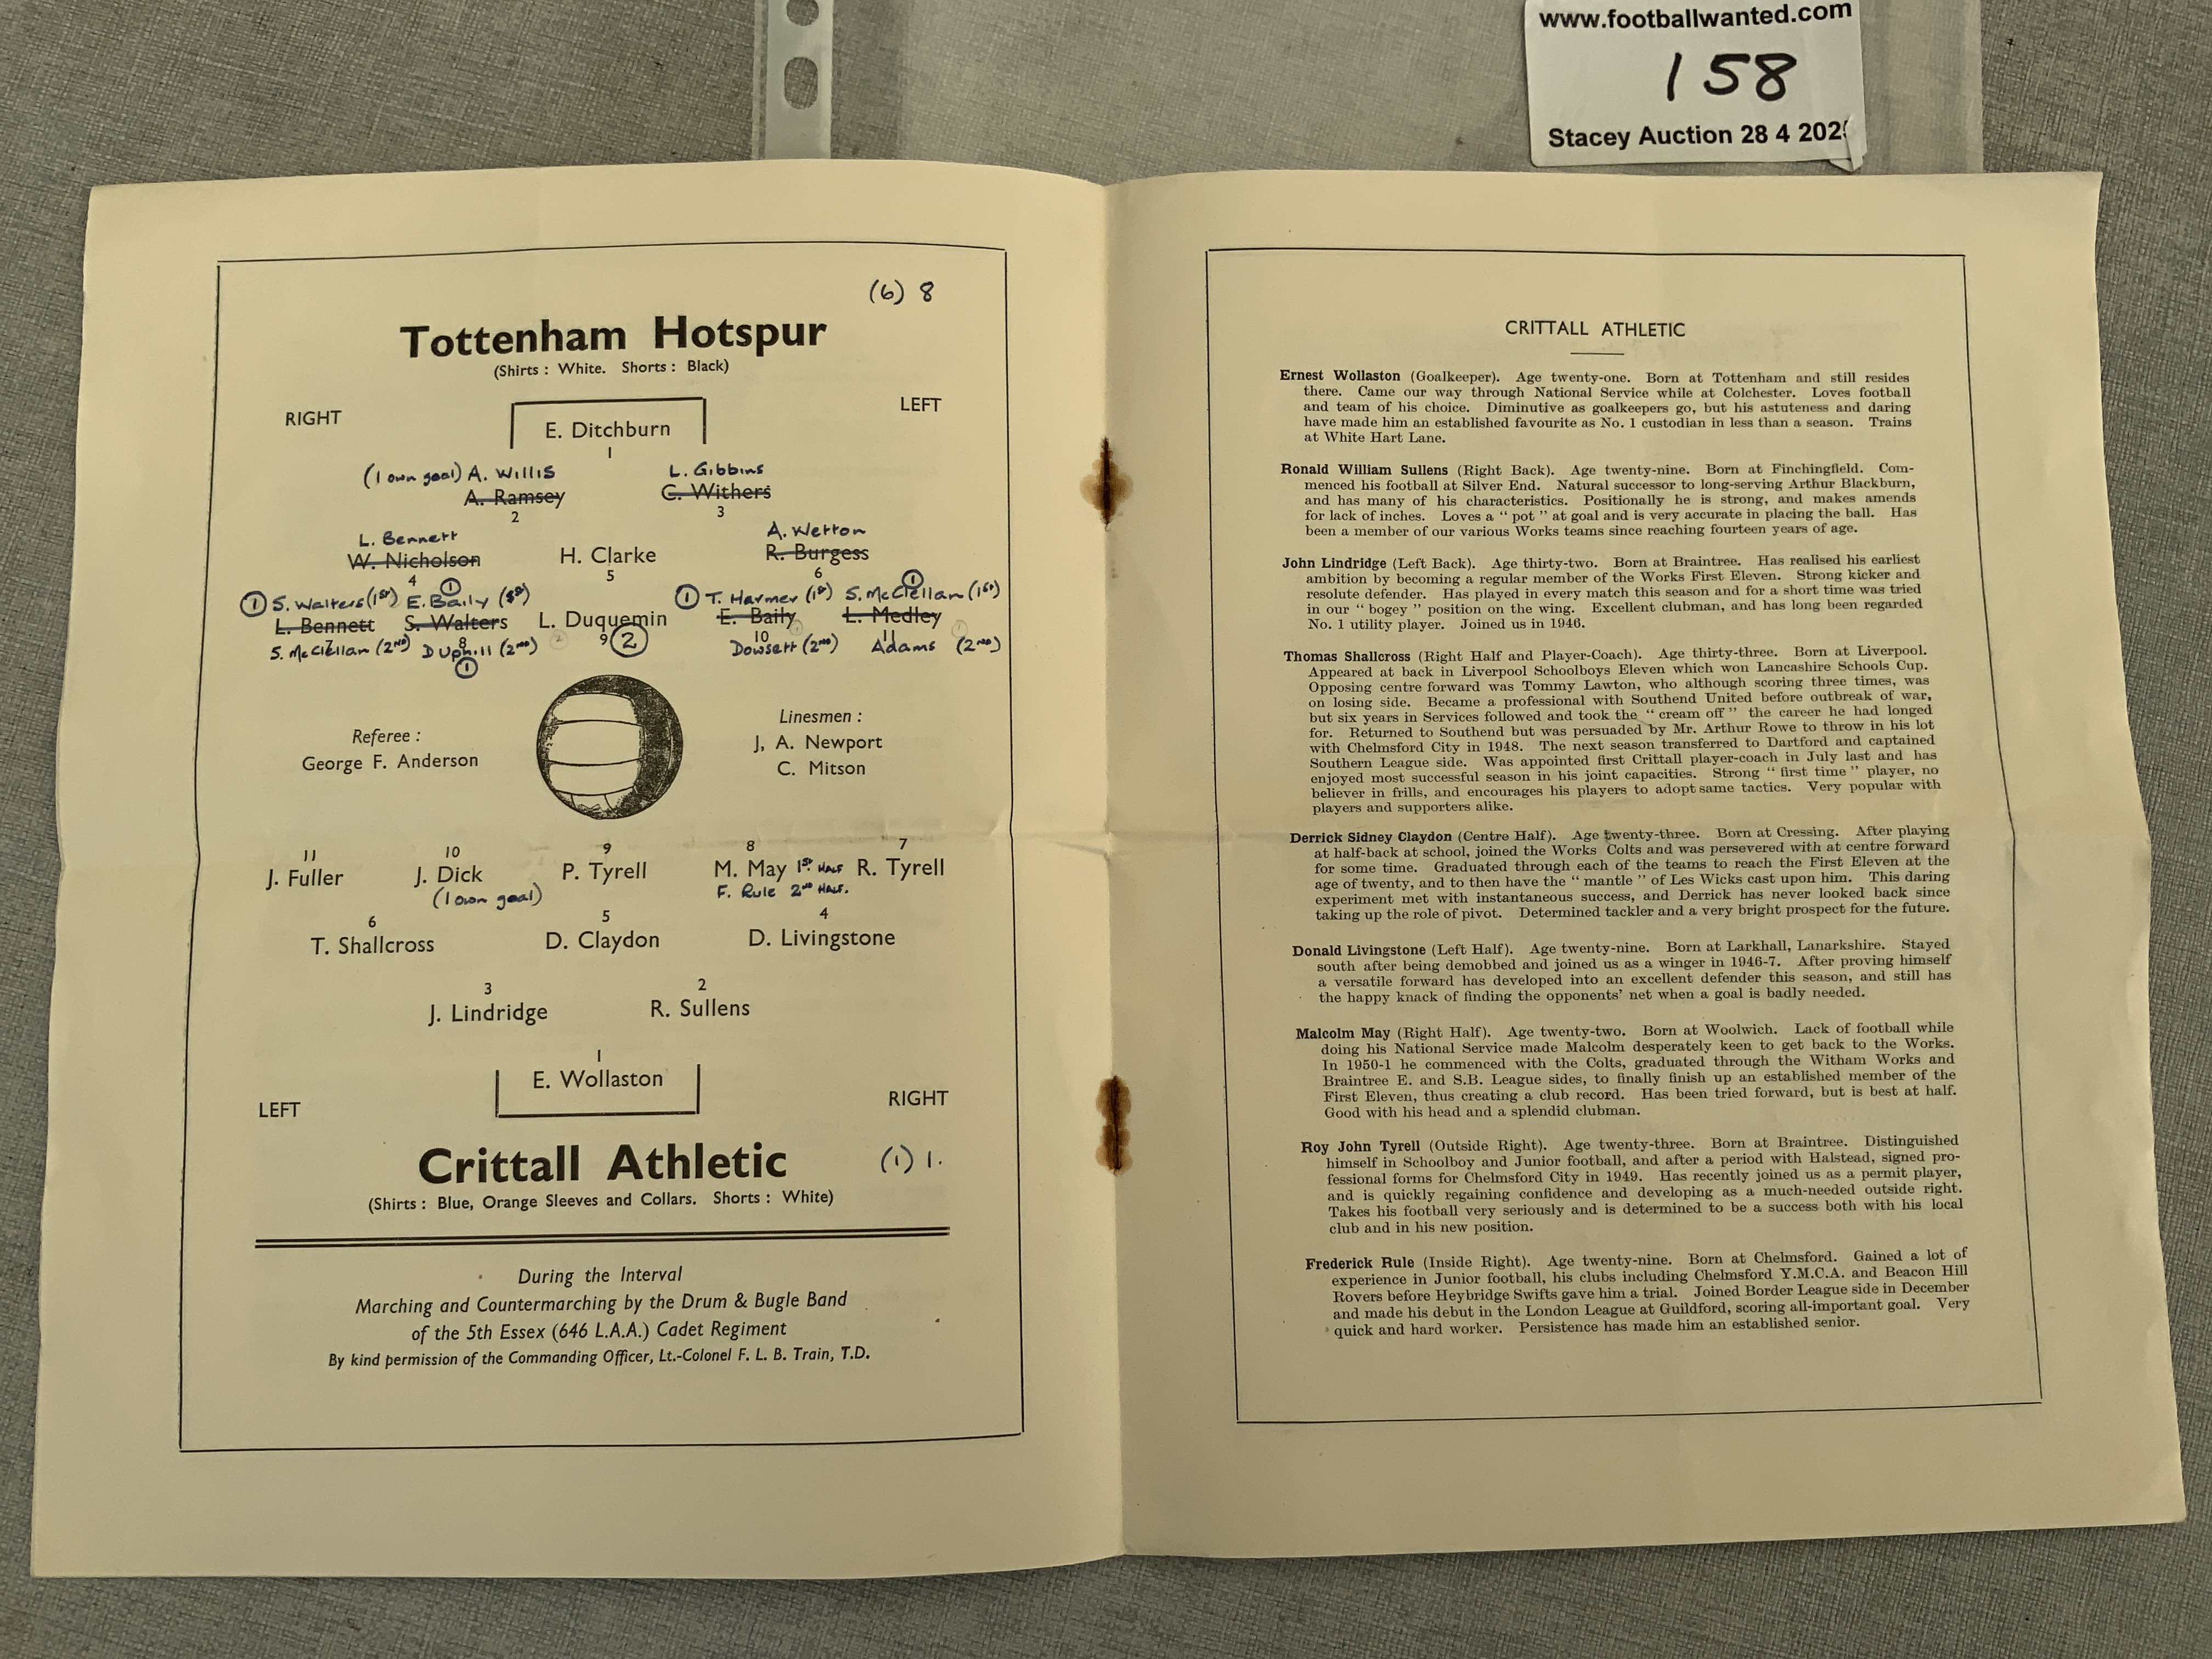 www.footballwanted.com
158
Stacey Auction 28 4 202
(6) 8
Tottenham Hotspur
(Shirts : White. Shorts : Black)
RIGHT
LEFT
E. Ditchburn
1
(1 own goal) A. Willis
L. Gibbins
A. Ramsey
C. Withers
2
3
L. Bennett
A. Wetton
W. Nicholson
H. Clarke
R. Burgess
4
5
6
1 S. Walters (1st) E. Baily 1 1 T. Harmer (1st) S. McClellan (1st) 1
L. Bennett S. Walters L. Duquemin E. Baily L. Medley
7 8 9 2 10 11
S. McClellan (2nd) D Uphill (2nd) 1 Dowsett (2nd) Adams (2nd)
Referee :
George F. Anderson
Linesmen :
J, A. Newport
C. Mitson
11 10 9 8 7
J. Fuller J. Dick P. Tyrell M. May 1st Half R. Tyrell
(1 own goal) F. Rule 2nd Half.
6 5 4
T. Shallcross D. Claydon D. Livingstone
3 2
J. Lindridge R. Sullens
1
E. Wollaston
LEFT
RIGHT
Crittall Athletic (1) 1.
(Shirts : Blue, Orange Sleeves and Collars. Shorts : White)
During the Interval
Marching and Countermarching by the Drum & Bugle Band
of the 5th Essex (646 L.A.A.) Cadet Regiment
By kind permission of the Commanding Officer, Lt.-Colonel F. L. B. Train, T.D.
CRITTALL ATHLETIC
Ernest Wollaston (Goalkeeper). Age twenty-one. Born at Tottenham and still resides
there. Came our way through National Service while at Colchester. Loves football
and team of his choice. Diminutive as goalkeepers go, but his astuteness and daring
have made him an established favourite as No. 1 custodian in less than a season. Trains
at White Hart Lane.
Ronald William Sullens (Right Back). Age twenty-nine. Born at Finchingfield. Com-
menced his football at Silver End. Natural successor to long-serving Arthur Blackburn,
and has many of his characteristics. Positionally he is strong, and makes amends
for lack of inches. Loves a " pot " at goal and is very accurate in placing the ball. Has
been a member of our various Works teams since reaching fourteen years of age.
John Lindridge (Left Back). Age thirty-two. Born at Braintree. Has realised his earliest
ambition by becoming a regular member of the Works First Eleven. Strong kicker and
resolute defender. Has played in every match this season and for a short time was tried
in our " bogey " position on the wing. Excellent clubman, and has long been regarded
No. 1 utility player. Joined us in 1946.
Thomas Shallcross (Right Half and Player-Coach). Age thirty-three. Born at Liverpool.
Appeared at back in Liverpool Schoolboys Eleven which won Lancashire Schools Cup.
Opposing centre forward was Tommy Lawton, who although scoring three times, was
on losing side. Became a professional with Southend United before outbreak of war,
but six years in Services followed and took the " cream off " the career he had longed
for. Returned to Southend but was persuaded by Mr. Arthur Rowe to throw in his lot
with Chelmsford City in 1948. The next season transferred to Dartford and captained
Southern League side. Was appointed first Crittall player-coach in July last and has
enjoyed most successful season in his joint capacities. Strong " first time " player, no
believer in frills, and encourages his players to adopt same tactics. Very popular with
players and supporters alike.
Derrick Sidney Claydon (Centre Half). Age twenty-three. Born at Cressing. After playing
at half-back at school, joined the Works Colts and was persevered with at centre forward
for some time. Graduated through each of the teams to reach the First Eleven at the
age of twenty, and to then have the " mantle " of Les Wicks cast upon him. This daring
experiment met with instantaneous success, and Derrick has never looked back since
taking up the role of pivot. Determined tackler and a very bright prospect for the future.
Donald Livingstone (Left Half). Age twenty-nine. Born at Larkhall, Lanarkshire. Stayed
south after being demobbed and joined us as a winger in 1946-7. After proving himself
a versatile forward has developed into an excellent defender this season, and still has
the happy knack of finding the opponents' net when a goal is badly needed.
Malcolm May (Right Half). Age twenty-two. Born at Woolwich. Lack of football while
doing his National Service made Malcolm desperately keen to get back to the Works.
In 1950-1 he commenced with the Colts, graduated through the Witham Works and
Braintree E. and S.B. League sides, to finally finish up an established member of the
First Eleven, thus creating a club record. Has been tried forward, but is best at half.
Good with his head and a splendid clubman.
Roy John Tyrell (Outside Right). Age twenty-three. Born at Braintree. Distinguished
himself in Schoolboy and Junior football, and after a period with Halstead, signed pro-
fessional forms for Chelmsford City in 1949. Has recently joined us as a permit player,
and is quickly regaining confidence and developing as a much-needed outside right.
Takes his football very seriously and is determined to be a success both with his local
club and in his new position.
Frederick Rule (Inside Right). Age twenty-nine. Born at Chelmsford. Gained a lot of
experience in Junior football, his clubs including Chelmsford Y.M.C.A. and Beacon Hill
Rovers before Heybridge Swifts gave him a trial. Joined Border League side in December
and made his debut in the London League at Guildford, scoring all-important goal. Very
quick and hard worker. Persistence has made him an established senior.